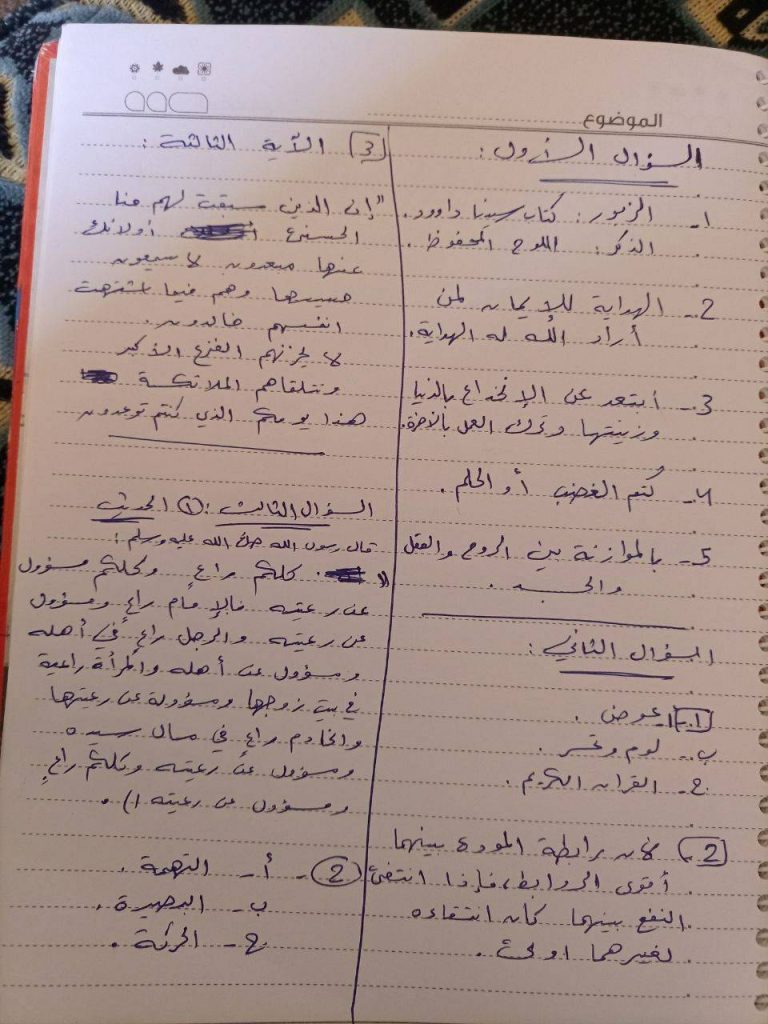 الموضوع
السؤال الأول :
1- الزبور : كتاب سيدنا داوود.
الذكر : اللوح المحفوظ .
2- الهداية للإيمان لمن
أراد الله له الهداية.
3- أبتعد عن الإنخداع بالدنيا
وزينتها وترك العمل بالآخرة.
4- كتم الغضب أو الحلم .
5- بالموازنة بين الروح والعقل
والجسد .
السؤال الثاني :
1- أ- عوض .
ب- لوم وتحسر .
ج- القران الكريم .
2- لأن رابطة المودة بينهما
أقوى الروابط، فإذا انتفى
النفع بينهما كان انتفاءه
لغيرهما اولى .
3 الآية الثالثة :
"إن الذين سبقت لهم منا
الحسنى أولائك
عنها مبعدون لا يسمعون
حسيسها وهم فيما اشتهت
انفسهم خالدون.
لا يحزنهم الفزع الأكبر
وتتلقاهم الملائكة
هذا يومكم الذي كنتم توعدون
السؤال الثالث : 1 الحديث
قال رسول الله صلى الله عليه وسلم :
" كلكم راعٍ وكلكم مسؤول
عن رعيته فالإمام راعٍ ومسؤول
عن رعيته والرجل راعٍ في أهله
ومسؤول عن أهله والمرأة راعية
في بيت زوجها ومسؤولة عن رعيتها
والخادم راعٍ في مال سيده
ومسؤول عن رعيته وكلكم راعٍ
ومسؤول عن رعيته ") .
2- أ- التهمة .
ب- البصيرة .
ج-